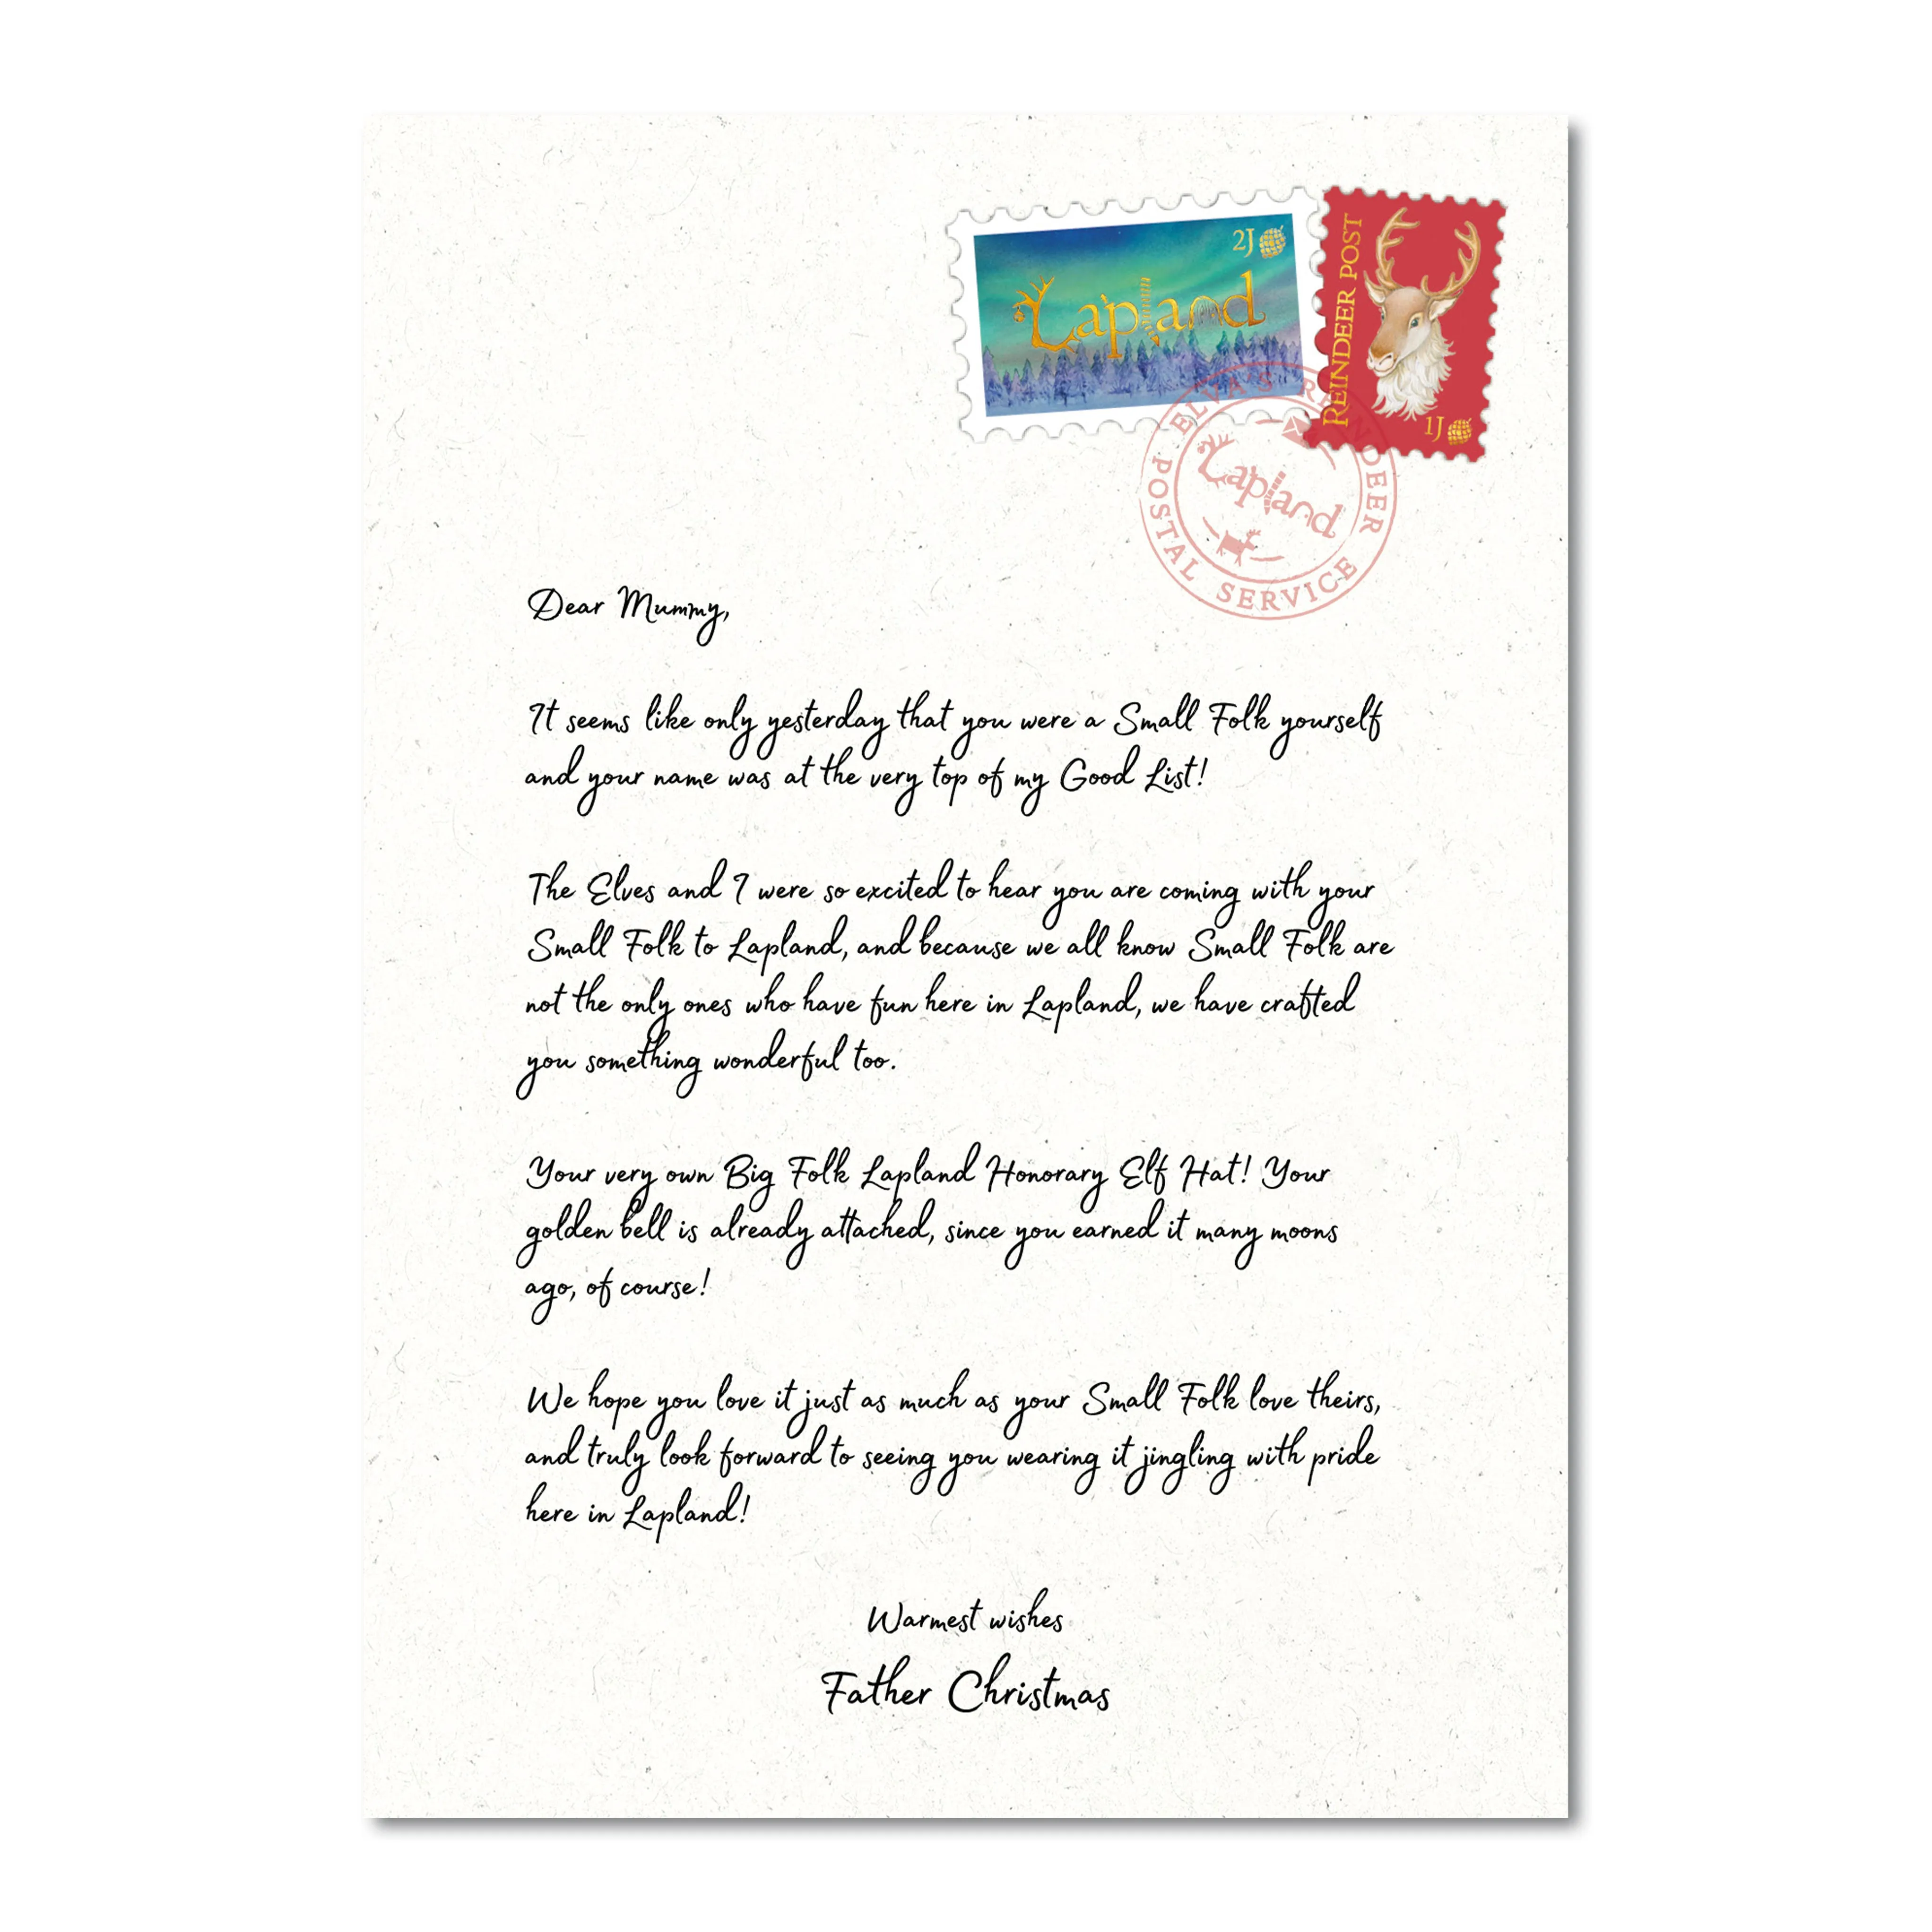 2J
Lapland
REINDEER POST
1J
ELVA'S REINDEER POSTAL SERVICE
Lapland
Dear Mummy,
It seems like only yesterday that you were a Small Folk yourself
and your name was at the very top of my Good List!
The Elves and I were so excited to hear you are coming with your
Small Folk to Lapland, and because we all know Small Folk are
not the only ones who have fun here in Lapland, we have crafted
you something wonderful too.
Your very own Big Folk Lapland Honorary Elf Hat! Your
golden bell is already attached, since you earned it many moons
ago, of course!
We hope you love it just as much as your Small Folk love theirs,
and truly look forward to seeing you wearing it jingling with pride
here in Lapland!
Warmest wishes
Father Christmas